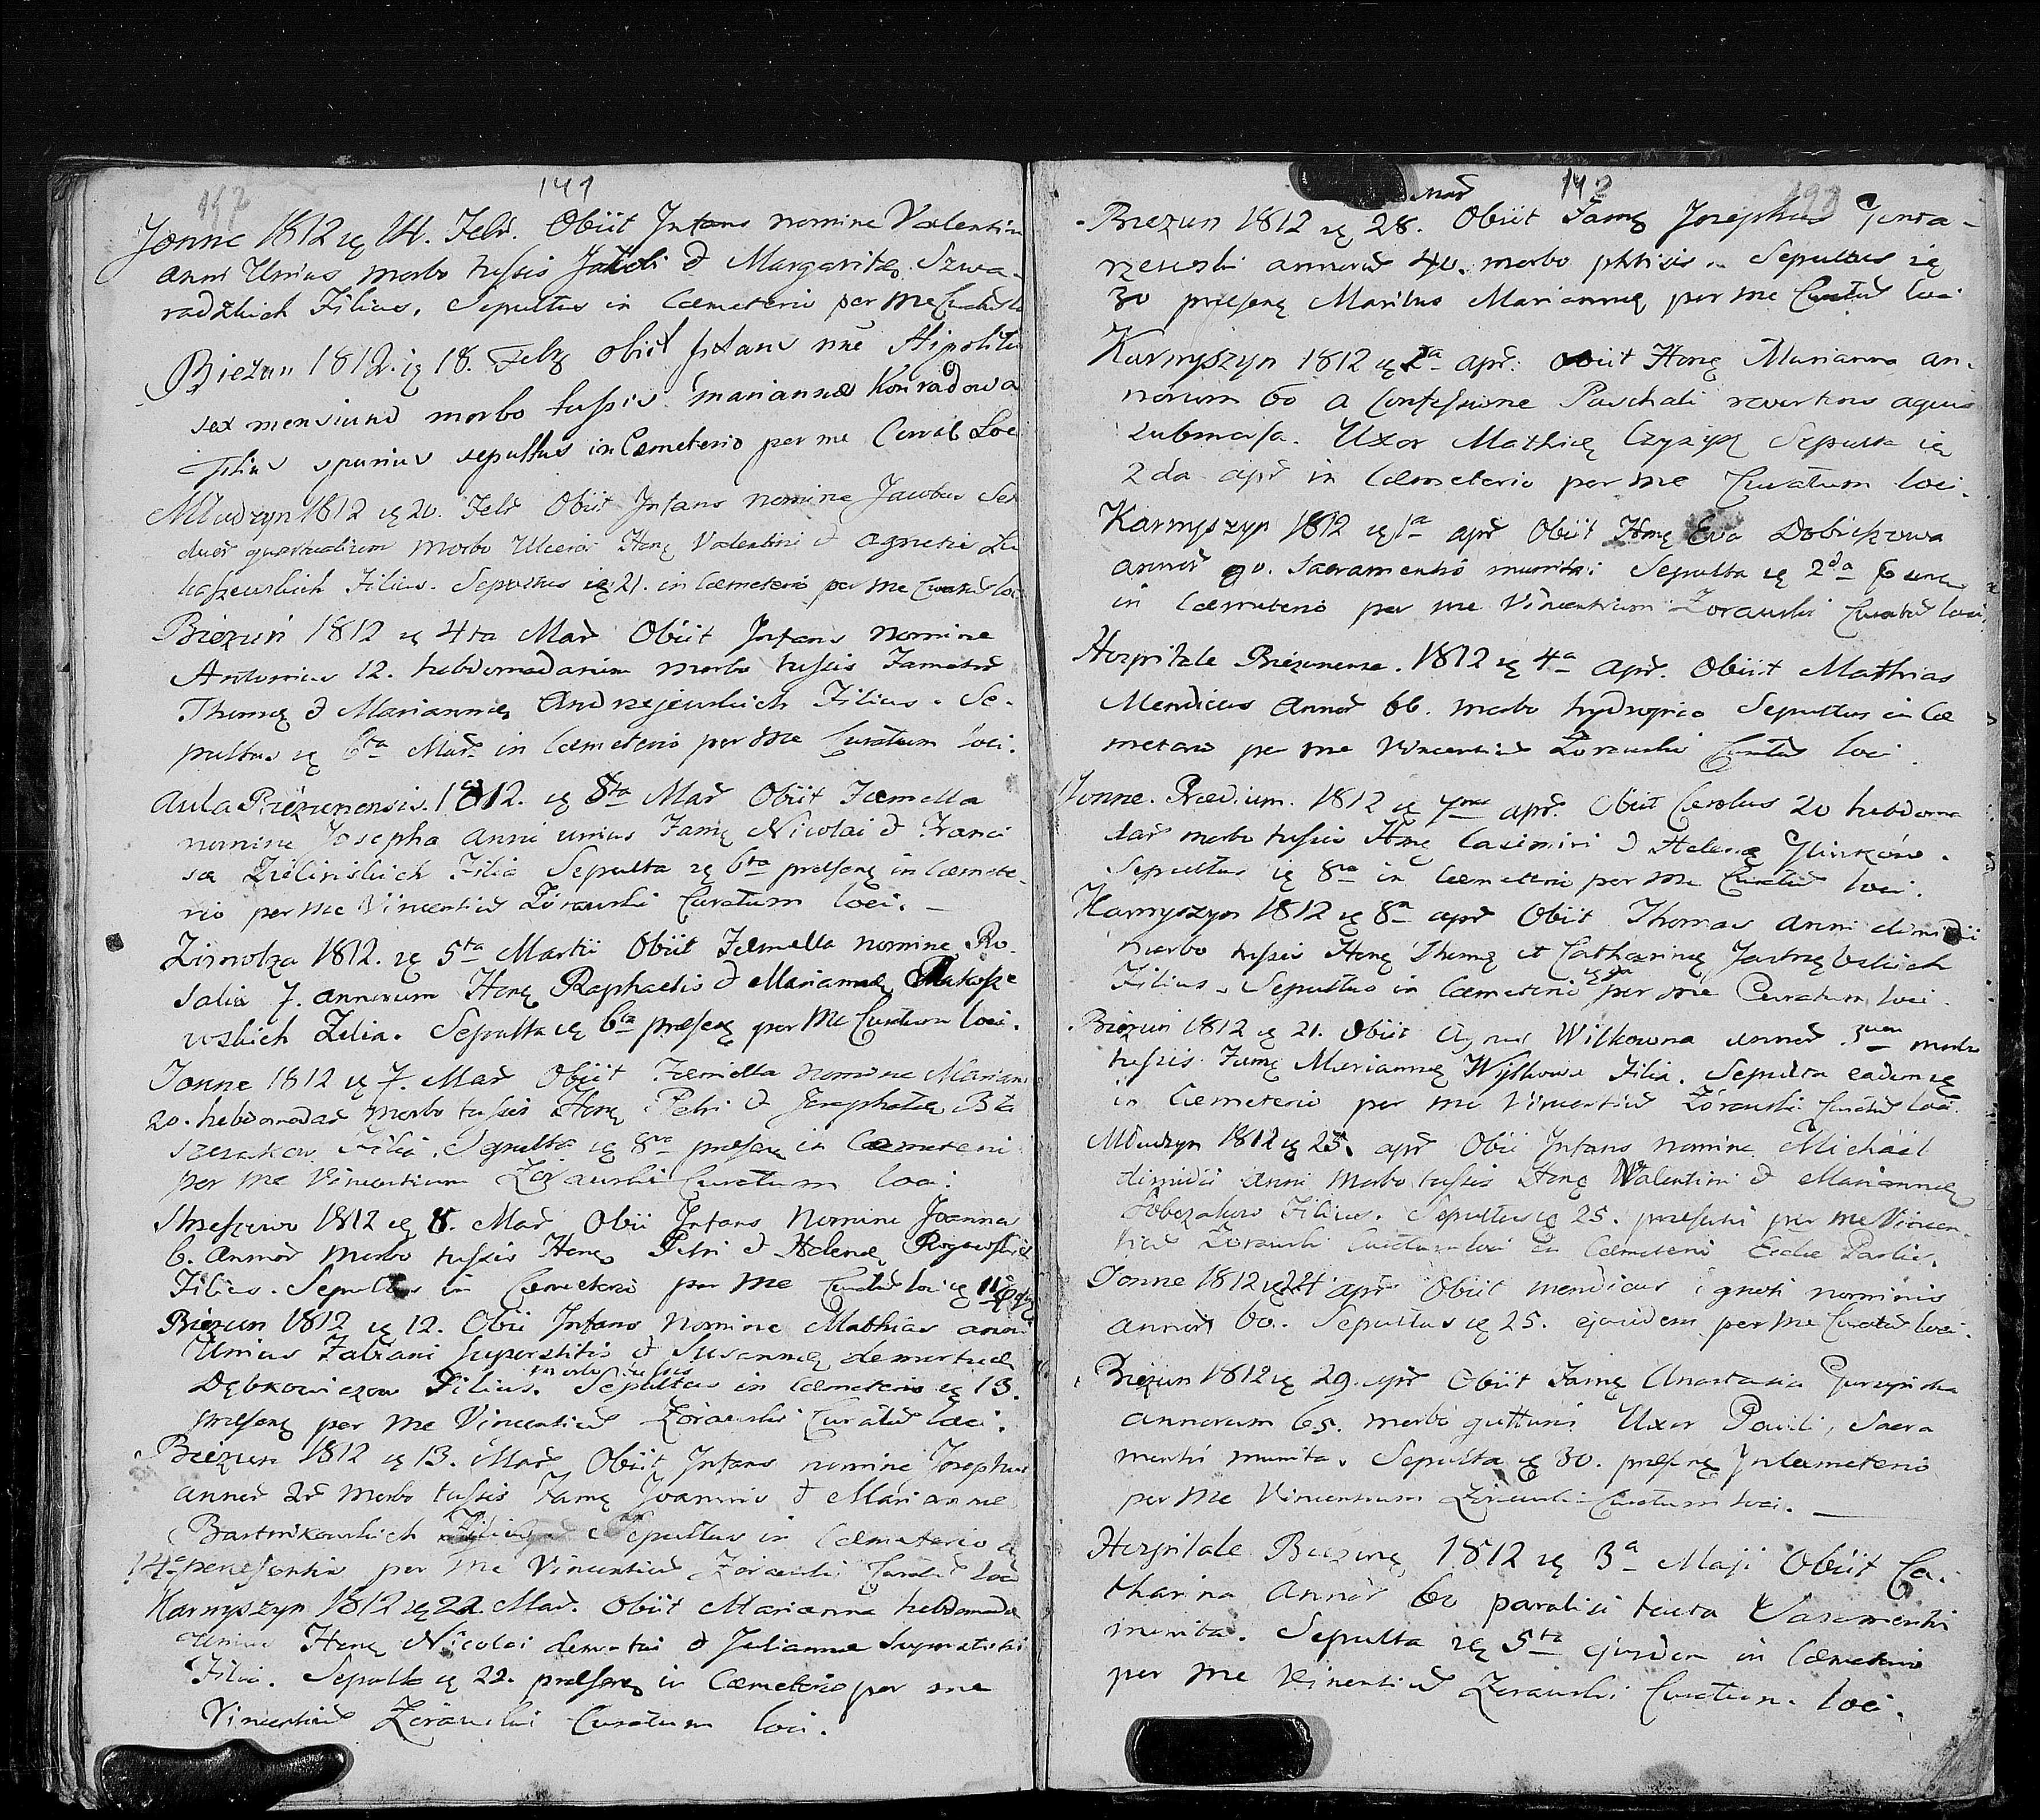 141
Jonne 1812 ię 14. Febr. Obiit Infans nomine Valentin
anni Unius morbo tussis Jacobi & Margaritæ Szwa-
radzkich Filius. Sepultus in Cæmeterio per me
Bieżun 1812. ię 18. Febr obiit Infans nne Hipolitu
sex mensium morbo tussis mariannæ Konradowa
Filius spurius sepultus in Cæmeterio per me Curat Loc
Mludzyn 1812 ię 20. Febr Obiit Infans nomine Jacobus
morbo Honę Valentini & agnetis
Filius. Sepultus ię 21. in Cæmeterio per me Curatū loc
Bieżuń 1812 ię 4ta Mar Obiit Infans nomine
Antonius 12. hebdomadarum morbo tussis Famator
Thomę & Mariannę Andrzejewskich Filius. Se-
pultus ię 6ta Mar. in Cæmeterio per me Curatum loci.
Aula Bieżunensis. 1812. ię Mar Obiit Fæmella
nomine Josepha anni unius Famę Nicolai & Franci
scæ Zielińskich Filia Sepulta ię 6ta præsenę in Cæmete-
rio per me Vincentiū Żórawski Curatum loci.
Zimolza 1812. ię 5ta Martii Obiit Fæmella nomine Ro-
salia 7. annorum Honę Raphaelis & Mariannę
wskich Filia. Sepulta ię 6ta præsenę per me Curatum loci.
Jonne 1812 ię 7. Mar Obiit Fæmella nomine Marian
20. hebdomadar morbo tussis Honę Petri & Josephatæ Bła
szczakow Filia. Sepulta ię 8va præsenę in Cæmeterio
per me Vincentium Zorawski Curatum loci.
Strzeszewo 1812 ię 8. Mar Obii Infans Nomine Joannes
6. annor morbo tussis Honę Petri & Helenę
Filius. Sepultus in Cæmeterio per me Curatū loci ię 11
Bieżun 1812 ię 12. Obii Infans Nomine Mathias anni
Unius Fabiani superstitis & Susannæ demortuæ
morbo tussis
Dębkowiczow Filius. Sepultus in Cæmeterio ię 13.
præsenę per me Vincentiū Zórawski Curatū loci.
Bieżun 1812 ię 13. Mar Obiit Infans nomine Josephus
annor 2r morbo tussis Famę Joannis & Mariannæ
Bartnikowskich Filius Sepultus in Cæmeterio
14a præsentis per me Vincentiū Zorawski Curatū loci
Karnyszyn 1812 ię 22. Mar. Obiit Marianna hebdomada
unius Honę Nicolai demortui & Juliannæ superstitis
Filia. Sepulta ię 22. præsenę in Cæmeterio per me
Vincentiū Zórawski Curatum loci.
142
Mar
Bieżun 1812 ię 28. Obiit Famę Josephus
rzewski annorū 40. morbo phtisis. Sepultus ię
30 præsenę Maritus Mariannę per me Curatū loci
Karnyszyn 1812 ię apr. obiit Honę Marianna an-
norum 60 a Confessione Paschali revertens aquis
submersa. Uxor Mathię Czyżyk Sepulta ię
2da apr in Cæmeterio per me Curatum loci.
Karnyszyn 1812 ię 1a apr Obiit Honę Eva Dobiszowa
annor 90. Sacramentis munita: Sepulta ię 2da
in Cæmeterio per me Vincentium Zorawski Curatū loci
Hospitale Bieżunense. 1812 ię 4a apr. Obiit Mathias
Mendicus annor 66. morbo hydropico Sepultus in Cæ
meterio per me Vincentiū Żórawski Curatū loci.
Jonne. Prædium. 1812 ię 7ma apr. Obiit Carolus 20 hebdoma
dar morbo tussis Honę Casimiri & Helenę
Sepultus ię 8va in Cæmeterio per me Curatū loci.
Karnyszyn 1812 ię 8a apr Obiit Thomas anni dimidii
morbo tussis Honę Thomę et Catharinę Jastrzębskich
Filius. Sepultus in Cæmeterio per me Curatum loci.
Bieżuń 1812 ię 21. Obiit Agnes Wilkowna annor 3um morbo
tussis Famę Mariannę Filia. Sepulta eadem ię
in Cæmeterio per me Vincentiū Zórawski Curatū loci.
Mludzyn 1812 ię 25. apr Obii Infans nomine Michael
dimidii anni morbo tussis Honę Valentini & Mariannę
Filius. Sepultus ię 25. præsentis per me Vincen-
tiū Zórawski Curatum loci in Cæmeterio
Jonne 1812 ię 24 apr Obiit mendicus ignoti nominis
annor 60. Sepultus ię 25. ejusdem per me Curatū loci.
Bieżun 1812 ię 29. apr Obiit Famę Anastasia
annorum 65. morbo gutturis Uxor Pauli, Sacra
mentis munita. Sepulta ię 30. præsenę In Cæmeterio
per me Vincentium Zórawski Curatum loci.
Hospitale 1812 ię 3a Maji Obiit Ca-
tharina annor 60 paralisi tacta Sacramentis
munita. Sepulta ię 5ta ejusdem in Cæmeterio
per me Vincentiū Zorawski Curatum loci.